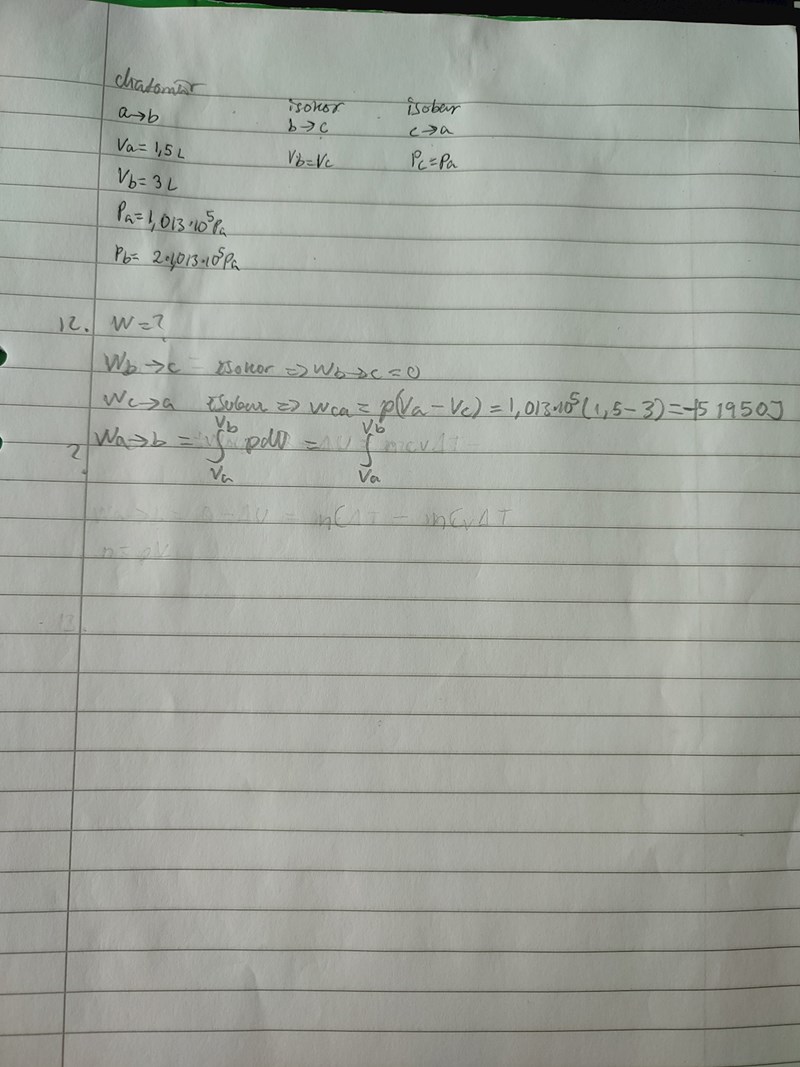 diatomär
a→b isokor isobar
b→c c→a
Va = 1,5 L Vb=Vc Pc=Pa
Vb = 3 L
Pa=1,013·10⁵Pa
Pb= 2·1,013·10⁵Pa
12. W=?
Wb→c isokor => Wb→c = 0
Wc→a isobar => Wca = p(Va - Vc) = 1,013·10⁵(1,5-3) = -151950J
? Wa→b = ∫ Va Vb pdV = ∫ Va Vb
= nCΔT - nCvΔT
n = pV
13.